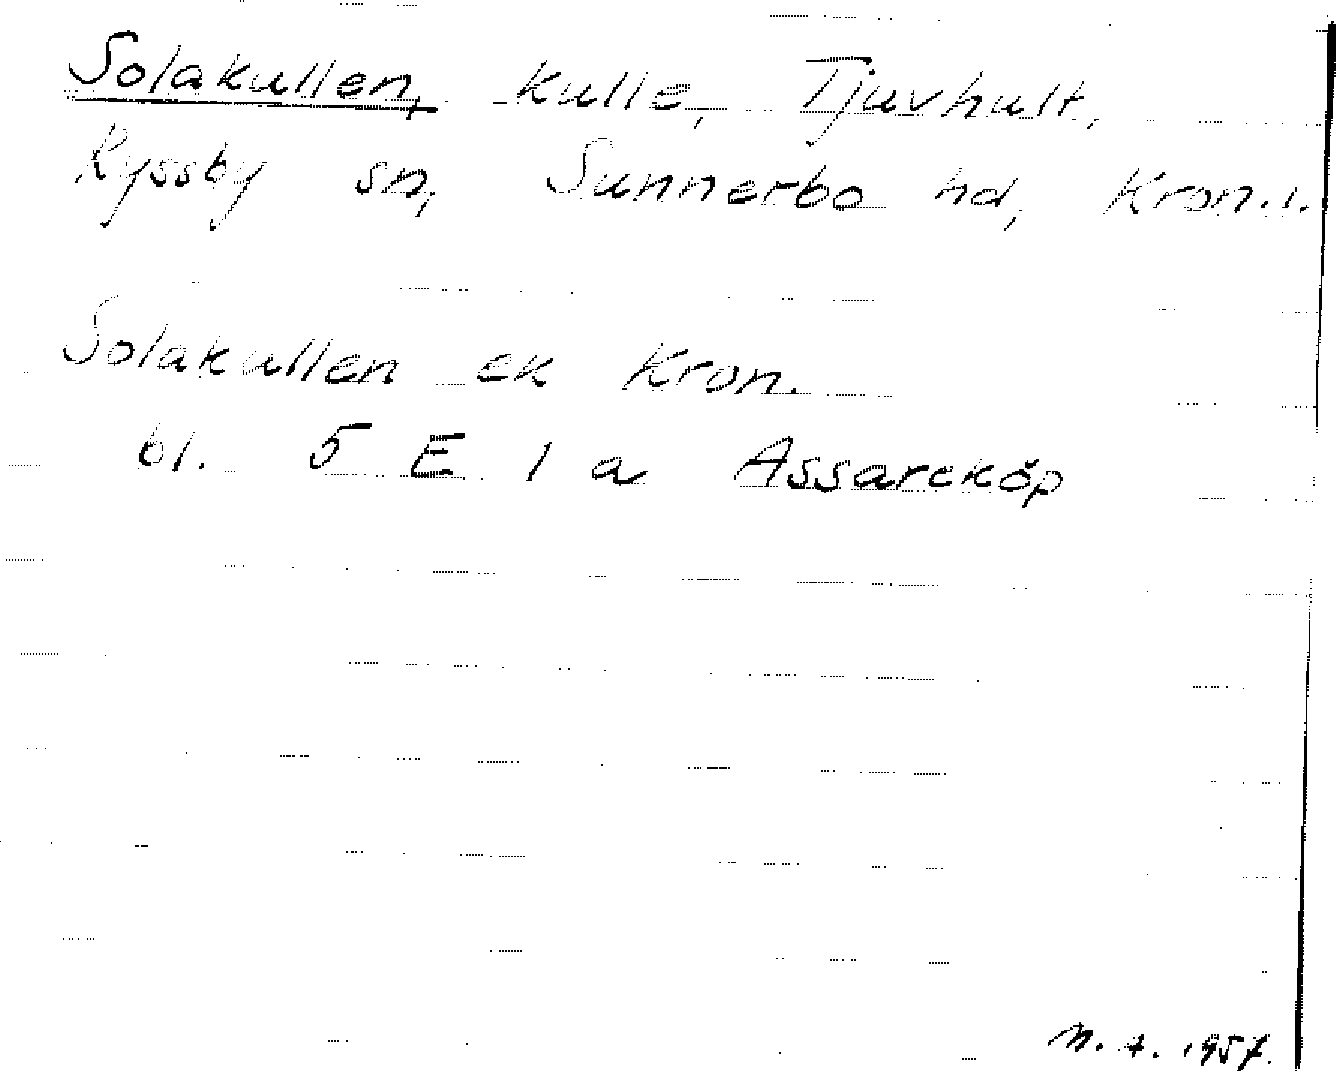 Solakullen, kulle, Tjuvhult,
Ryssby sn, Sunnerbo hd, Kron.l.
Solakullen ek Kron.
bl. 5 E 1 a Assareköp
1957.